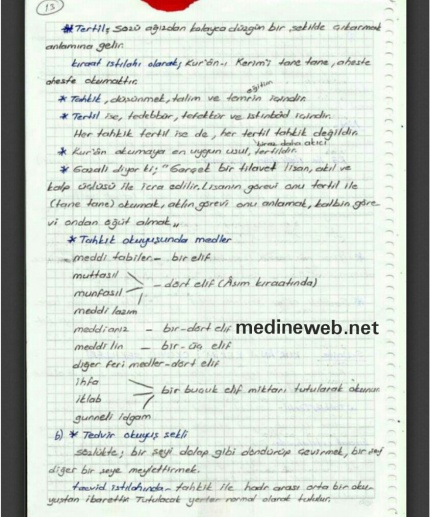 13
* Tertil; sözü ağızdan kolayca düzgün bir şekilde çıkarmak
anlamına gelir.
kıraat ıstılahı olarak; Kur'ân-ı Kerim'i tane tane, aheste
aheste okumaktır.
eğitim
* Tahkik, düşünmek, talim ve temrin içindir.
* Tertil ise, tedebbür, tefekkür ve istinbâd içindir.
Her tahkik tertil ise de, her tertil tahkik değildir.
biraz daha akıcı
* Kur'ân okumaya en uygun usul, tertildir.
* Gazali diyor ki; "Gerçek bir tilavet lisan, akıl ve
kalp üçlüsü ile icra edilir. Lisanın görevi onu tertil ile
(tane tane) okumak, aklın görevi onu anlamak, kalbin göre-
vi ondan öğüt almak"
* Tahkik okuyuşunda medler
meddi tabiler - bir elif
muttasıl
munfasıl - dört elif (Âsım kıraatında)
meddi lazım
meddi arız - bir-dört elif medineweb.net
meddi lin - bir-üç elif
diğer feri medler-dört elif
ihfa
iklab bir buçuk elif miktarı tutularak okunur
gunneli idgam
b) * Tedvir okuyuş şekli
sözlükte; bir şeyi dolap gibi döndürüp çevirmek, bir şeyi
diğer bir şeye meylettirmek.
tecvid ıstılahında - tahkik ile hadr arası orta bir oku-
yuştan ibarettir. Tutulacak yerler normal olarak tutulur.